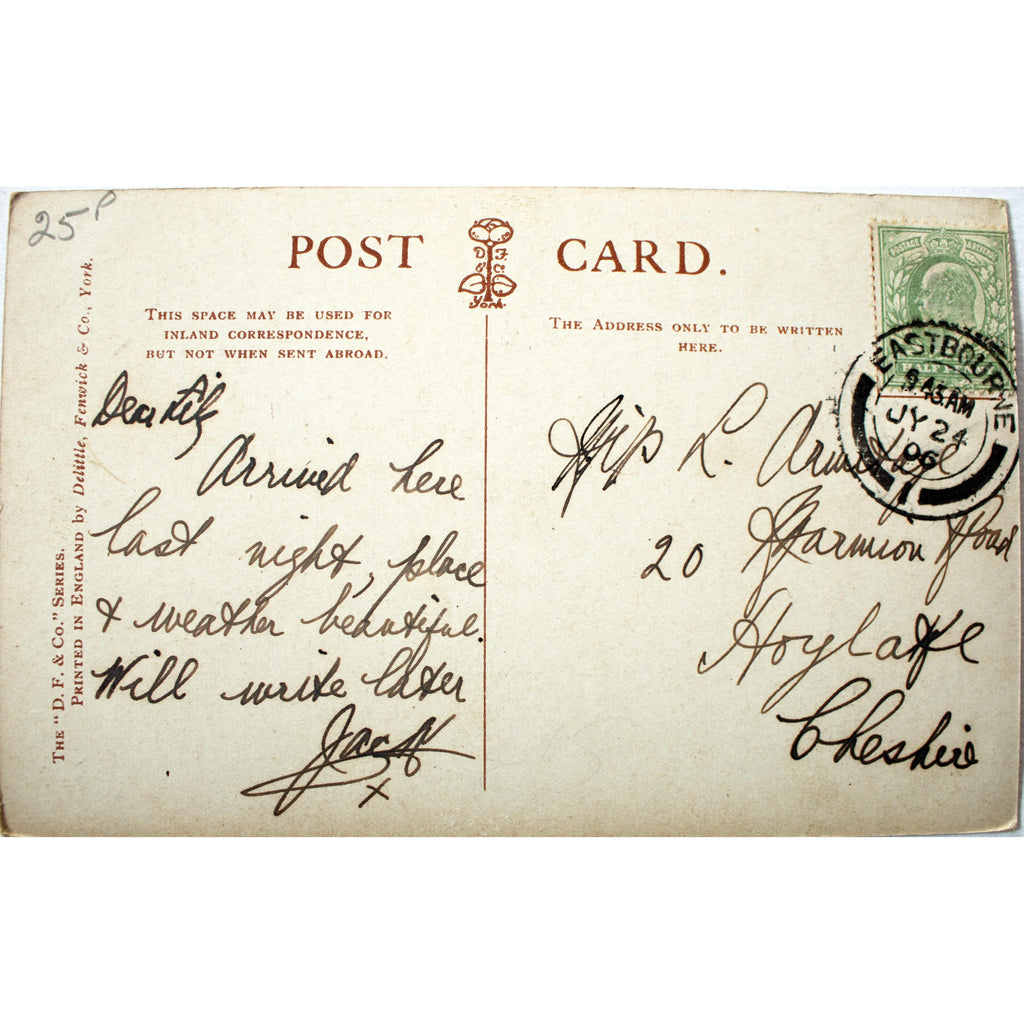 25P
POST CARD.
D F
& C°
York.
THIS SPACE MAY BE USED FOR
INLAND CORRESPONDENCE,
BUT NOT WHEN SENT ABROAD.
THE ADDRESS ONLY TO BE WRITTEN
HERE.
THE "D. F. & CO." SERIES.
PRINTED IN ENGLAND by Delittle, Fenwick & Co., York.
Dear
Arrived here
last night, place
& weather beautiful.
Will write later
Jack
x
POSTAGE
HALF
EASTBOURNE
9.45 AM
JY 24
06
1
L.
20 Marmion Road
Hoylake
Cheshire